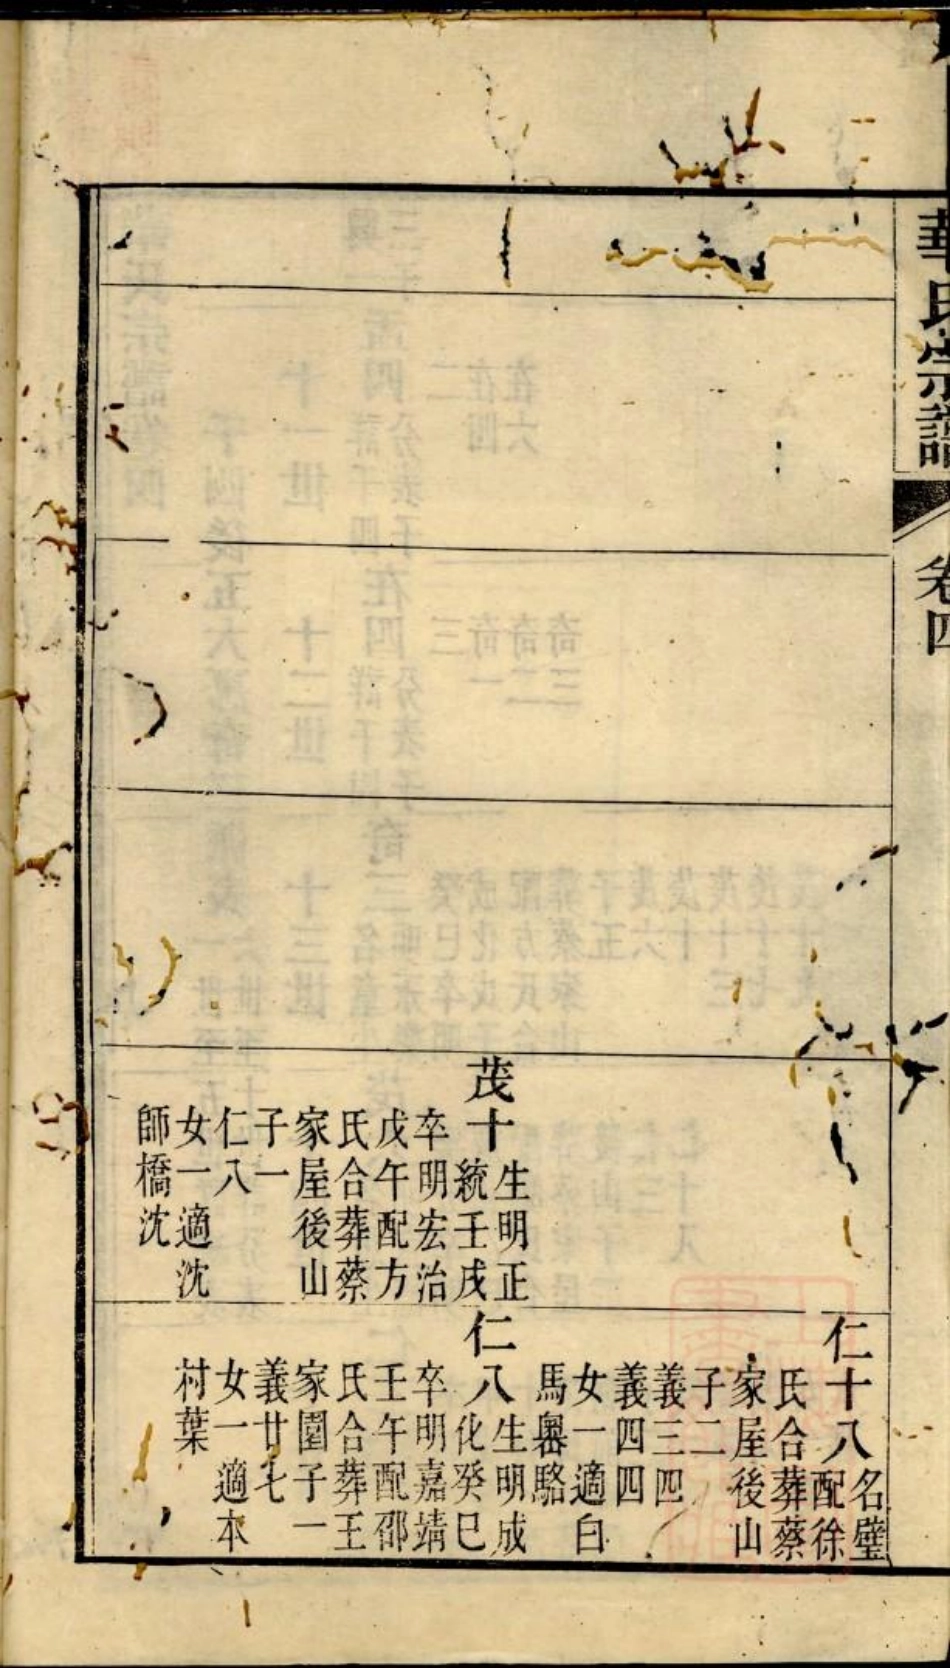 華氏宗譜
卷四
茂十
生明正
統壬戌
卒明宏治
戊午配方
氏合葬蔡
家屋後山
子一
仁八
女一適沈
師橋沈
仁十八
名璧
配徐
氏合葬蔡
家屋後山
子二
義三四
義四四
女一適白
馬嶴駱
仁八
生明成
化癸巳
卒明嘉靖
壬午配邵
氏合葬王
家園子一
義廿七
女一適本
村葉